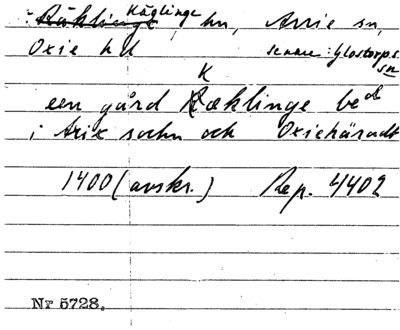 Räklinge Käglinge, hn, Arrie sn,
Oxie hd senare: Glostorps sn
K
een gård Ræklinge bed
i Arix sochn och Oxiehäradt
1400 (avskr.) Rep. 4402
Nr 5728.